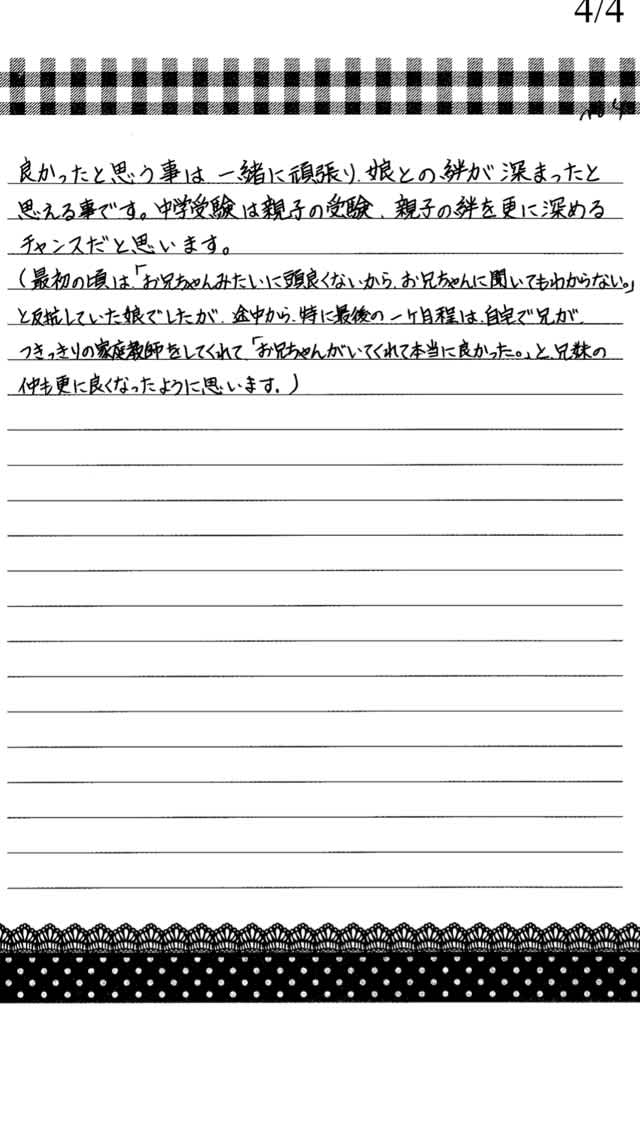 4/4
No 4
良かったと思う事は、一緒に頑張り、娘との絆が深まったと
思える事です。中学受験は親子の受験、親子の絆を更に深める
チャンスだと思います。
(最初の頃は、「お兄ちゃんみたいに頭良くないから、お兄ちゃんに聞いてもわからない。」
と反抗していた娘でしたが、途中から、特に最後の一ヶ月程は、自宅で兄が、
つきっきりの家庭教師をしてくれて「お兄ちゃんがいてくれて本当に良かった。」と、兄妹の
仲も更に良くなったように思います。)